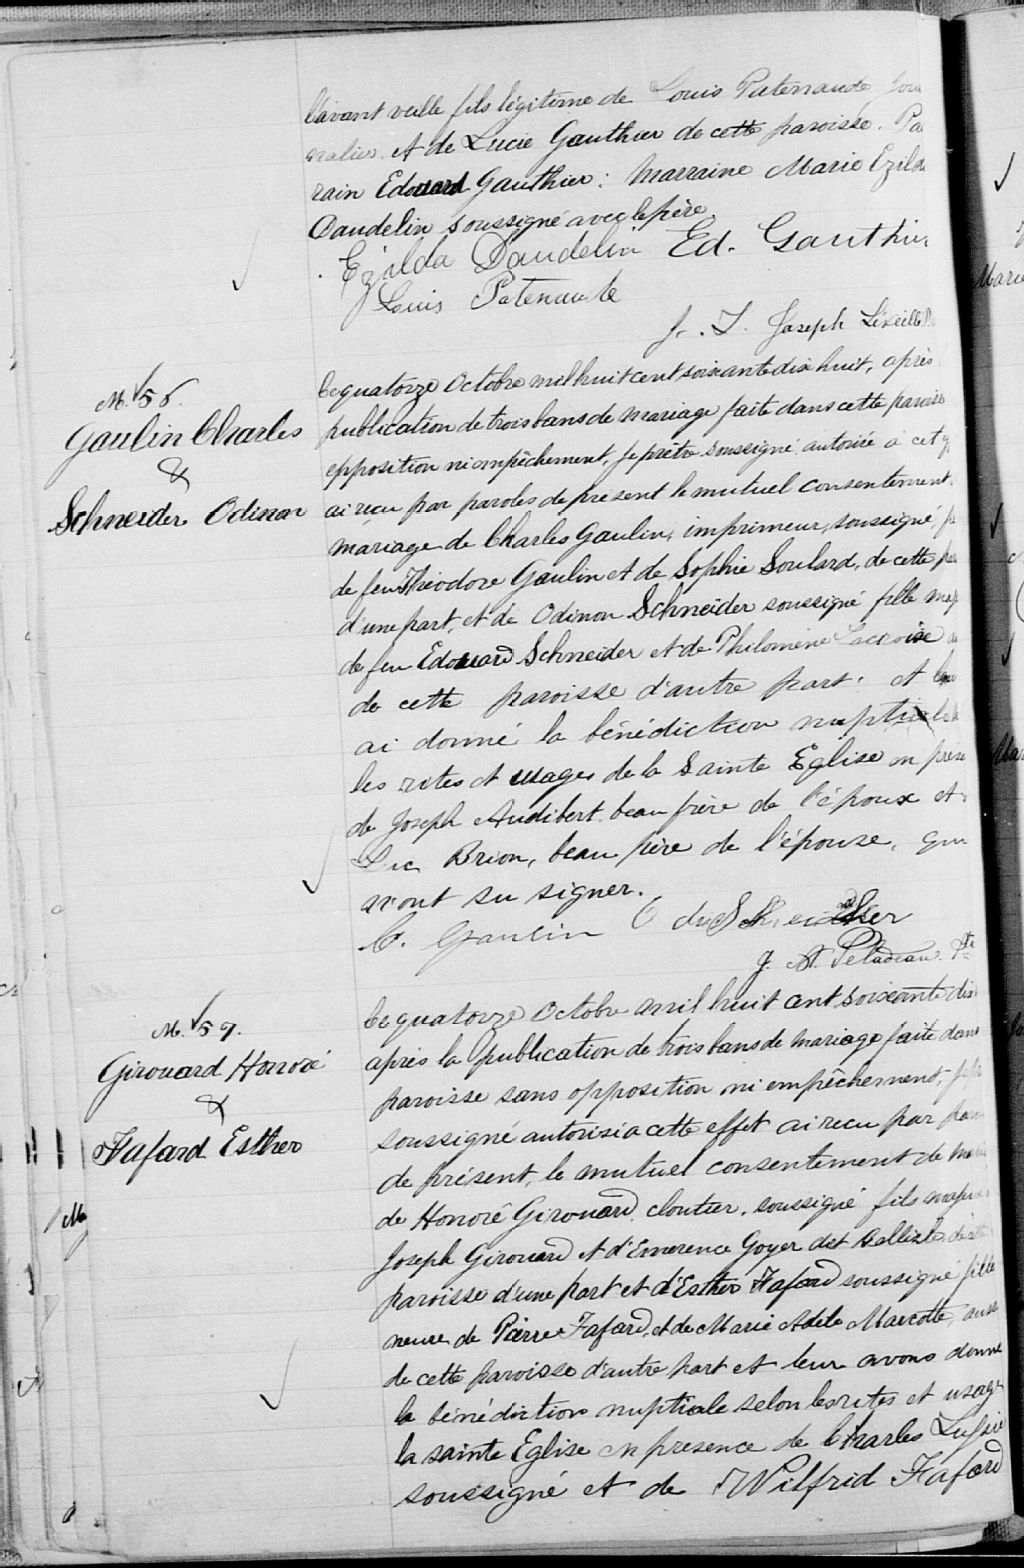 l'avant veille fils légitime de Louis Patenaude Jour
nalier et de Lucie Gauthier de cette paroisse. Pa
rain Edouard Gauthier; marraine Marie Ezilda
Daudelin soussigné avec le père
Ezilda Daudelin Ed. Gauthier
Louis Patenaude
J. Joseph Léveillé
M. 56.
Gaulin Charles
&
Schneider Odinon
Le quatorze Octobre mil huit cent soixante dix huit, après
publication de trois bans de mariage faite dans cette paroisse
opposition ni empêchement, je prêtre soussigné autorisé à cet
ai reçu par paroles de présent le mutuel consentement
mariage de Charles Gaulin, imprimeur, soussigné,
de feu Théodore Gaulin et de Sophie Soulard, de cette pa
d'une part, et de Odinon Schneider soussigné fille maj
de feu Edouard Schneider et de Philomène
de cette paroisse d'autre part; et leur
ai donné la bénédiction nuptiale
les rites et usages de la Sainte Eglise en prése
de Joseph Audibert beau frère de l'époux et
Luc Brion, beau père de l'épouse, qui
n'ont su signer.
C. Gaulin O du Schneider
J. A. Peladeau Ptre
M. 57.
Girouard Honoré
&
Fafard Esther
Le quatorze Octobre mil huit cent soixante dix
après la publication de trois bans de mariage faite dans
paroisse sans opposition ni empêchement,
soussigné autorisé a cette effet ai recu par paro
de présent, le mutuel consentement de mari
de Honoré Girouard cloutier, soussigné fils majeur
Joseph Girouard et d'Emerence Goyer dit Bellisle de cette
paroisse d'une part et d'Esther Fafard soussigné fille
neure de Pierre Fafard, et de Marie Adèle Marcotte, aussi
de cette paroisse d'autre part et leur avons donné
la bénédiction nuptiale selon les rites et usage
la sainte Eglise en presence de Charles
soussigné et de Wilfrid Fafard